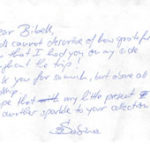 ear Bibek,
ds cannot describe how grateful
that I had you on my side
the trip!
k you for so much, but above all
ope that my little present
another sparkle to your collection
Sabina